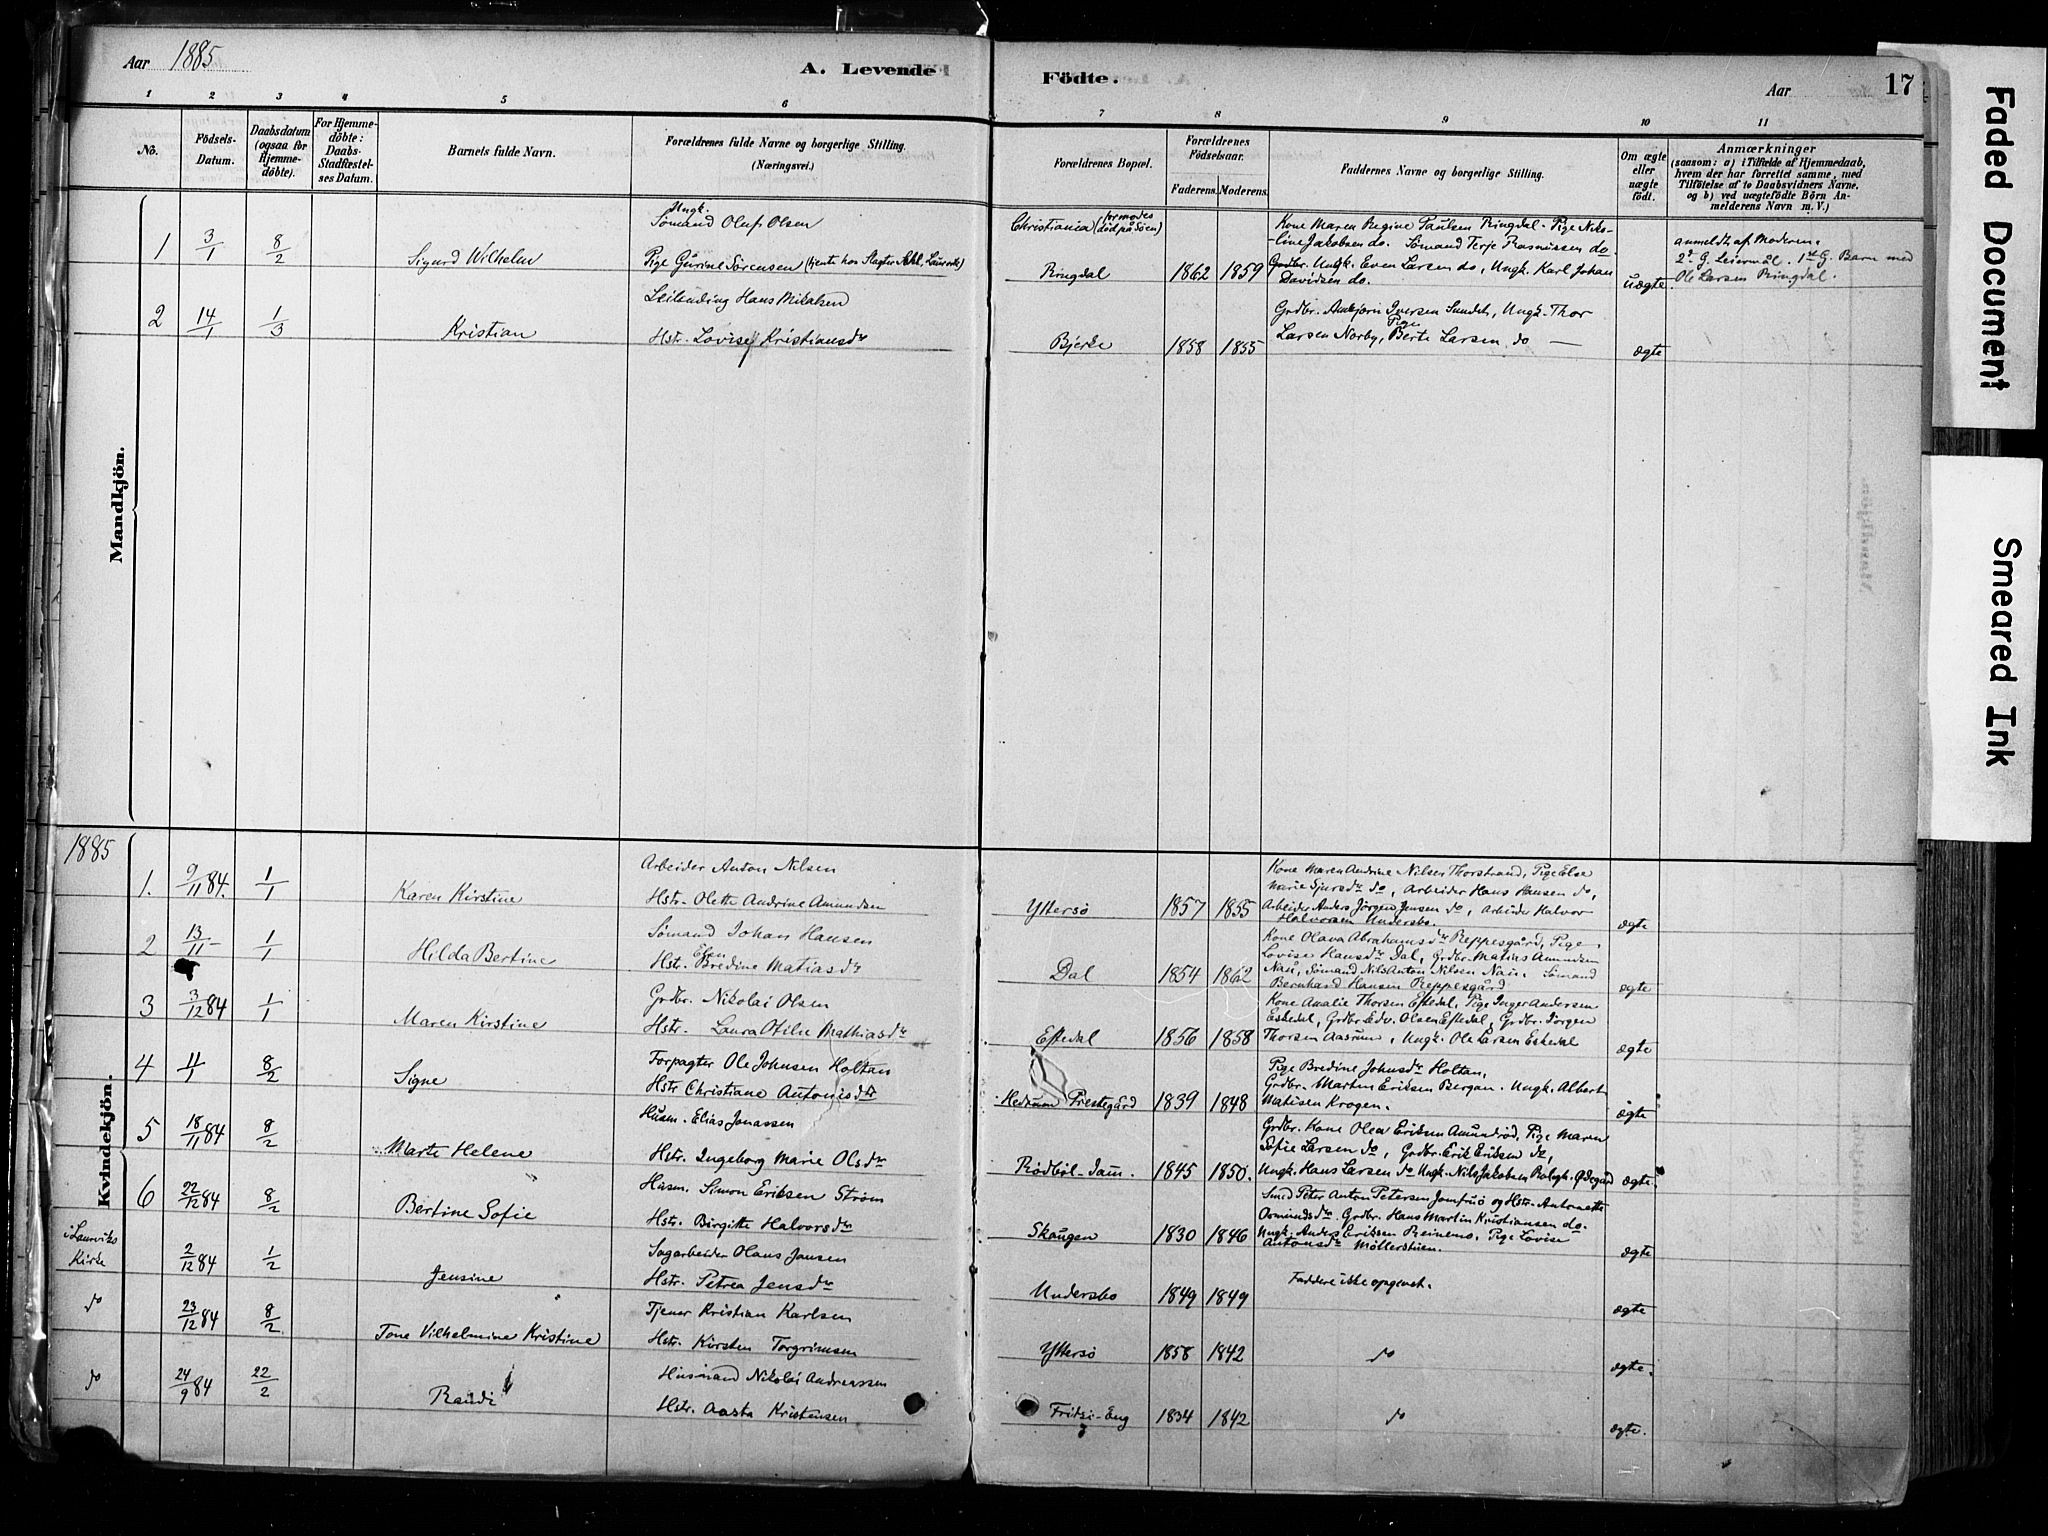 Aar 1885
A. Levende Födte.
Aar
17
1 2 3 4 5 6 7 8 9 10 11
No.
Födsels-Datum.
Daabsdatum (ogsaa for Hjemmedöbte).
For Hjemmedöbte: Daabs-Stadfæstelses Datum.
Barnets fulde Navn.
Forældrenes fulde Navne og borgerlige Stilling. (Næringsvei.)
Forældrenes Bopæl.
Forældrenes Födselsaar.
Faderens. Moderens.
Faddernes Navne og borgerlige Stilling.
Om ægte eller uægte födt.
Anmærkninger
(saasom: a) i Tilfælde af Hjemmedaab, hvem der har forrettet samme, med Tilföielse af to Daabsvidners Navne, og b) ved uægtefödte Börn Anmelderens Navn m. V.)
Mandkjön.
1 3/1 8/2 Sigurd Wilhelm
Ungk. Sømand Oluf Olsen
Pige Gurine Sørensen (tjente hos Slagter Laurvik)
Christiania (formodes død på Søen)
Ringdal 1862 1859
Kone Maren Regine Paulsen Ringdal. Pige Niko-
line Jakobsen do. Sømand Terje Rasmussen do
Grdbr. Ungk. Even Larsen do, Ungk. Karl Johan
Davidsen do.
uægte
anmeldt af Moderen.
2d G. Leiermål. 1st G. Barn med
Ole Larsen Ringdal.
2 14/1 1/3 Kristian
Leilending Hans Mikalsen
Hstr. Lovise Kristiansdtr
Bjerke 1858 1855
Grdbr. Anbjørn Iversen Sundet, Ungk. Thor
Larsen Norby, Pige Berte Larsen do
ægte
1885
Kvindekjön.
1. 9/11 84. 1/1 Karen Kirstine
Arbeider Anton Nilsen
Hstr. Olette Andrine Amundsen
Yttersø 1857 1855
Kone Maren Andrine Nilsen Thorstrand, Pige Else
Marie Sjursdtr do, Arbeider Hans Hansen do,
Arbeider Anders Jörgen Jensen do, Arbeider Halvor
Halvorsen Undersbo.
ægte
2 13/11 - 1/1 Hilda Bertine
Sømand Johan Hansen
Hstr. Elen Bredine Matiasdtr
Dal 1854 1862
Kone Olava Abrahamsdtr Reppesgård, Pige
Lovise Hansdtr Dal, Grdbr. Matias Amundsen
Nau, Sømand Nils Anton Nilsen Nau. Sømand
Bernhard Hansen Reppesgård
ægte
3 3/12 84 1/1 Maren Kirstine
Grdbr. Nikolai Olsen
Hstr. Laura Otilie Mathiasdtr
Eftedal 1856 1858
Kone Amalie Thorsen Eftedal, Pige Inger Andersen
Eskedal, Grdbr. Edv. Olsen Eftedal, Grdbr. Jörgen
Thorsen Aasrum, Ungk. Ole Larsen Eskedal
ægte
4 4/1 8/2 Signe
Forpagter Ole Johnsen Holtan
Hstr Christiane Antonisdtr
Hedrum Prestegård 1839 1848
Pige Bredine Johnsdtr Holtan,
Grdbr. Martin Eriksen Bergan. Ungk. Albert
Matisen Krogen.
ægte
5 18/11 84 8/2 Marte Helene
Husm. Elias Jonassen
Hstr. Ingeborg Marie Olsdtr
Rödböl-Jau. 1845 1850.
Grdbr. Kone Olea Eriksen Amundröd, Pige Maren
Sofie Larsen do, Grdbr. Erik Eriksen do,
Ungk. Hans Larsen do Ungk. Nils Jakobsen Ødegård
ægte.
6 22/12 84 8/2 Bertine Sofie
Husm. Simon Eriksen Strøm
Hstr. Birgitte Halvorsdtr
Skaugen 1830 1846
Smed Peter Anton Petersen Jomfruö og Hstr. Antonette
Osmundsdtr. Grdbr. Hans Martin Kristiansen do.
Ungk. Anders Eriksen Reinemo. Pige Lovise
Antonsdtr Möllerstuen.
ægte
i Laurviks Kirke
2/12 84 1/2 Jensine
Sagarbeider Olaus Jansen
Hstr. Petrea Jensdtr
Undersbo 1849 1849
Faddere ikke opgivet.
ægte
do
23/12 84 8/2 Tone Vilhelmine Kristine
Tjener Kristian Karlsen
Hstr. Kirsten Torgrimsen
Yttersø 1858 1842
do
ægte.
do
24/9 84 22/2 Randi
Husmand Nikolai Andreassen
Hstr. Aasta Kristensen
Fritsö-Eng 1834 1842
do
ægte.
Faded Document
Smeared Ink